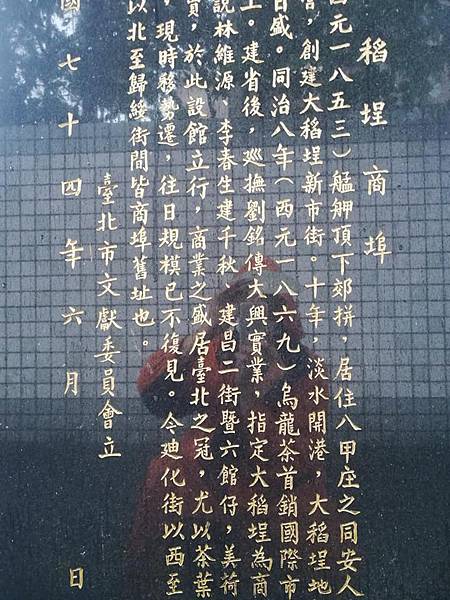 稻埕商埠
西元一八五三）艋舺頂下郊拼，居住八甲庄之同安人
，創建大稻埕新市街。十年，淡水開港，大稻埕地
日盛。同治八年（西元一八六九）烏龍茶首銷國際市
上。建省後，巡撫劉銘傳大興實業，指定大稻埕為商
說林維源、李春生建千秋、建昌二街暨六館仔，美荷
，於此設館立行，商業之盛居臺北之冠，尤以茶葉
，現時移勢遷，往日規模已不復見。今廸化街以西至
以北至歸綏街間皆商埠舊址也。
臺北市文獻委員會立
國七十四年六月日